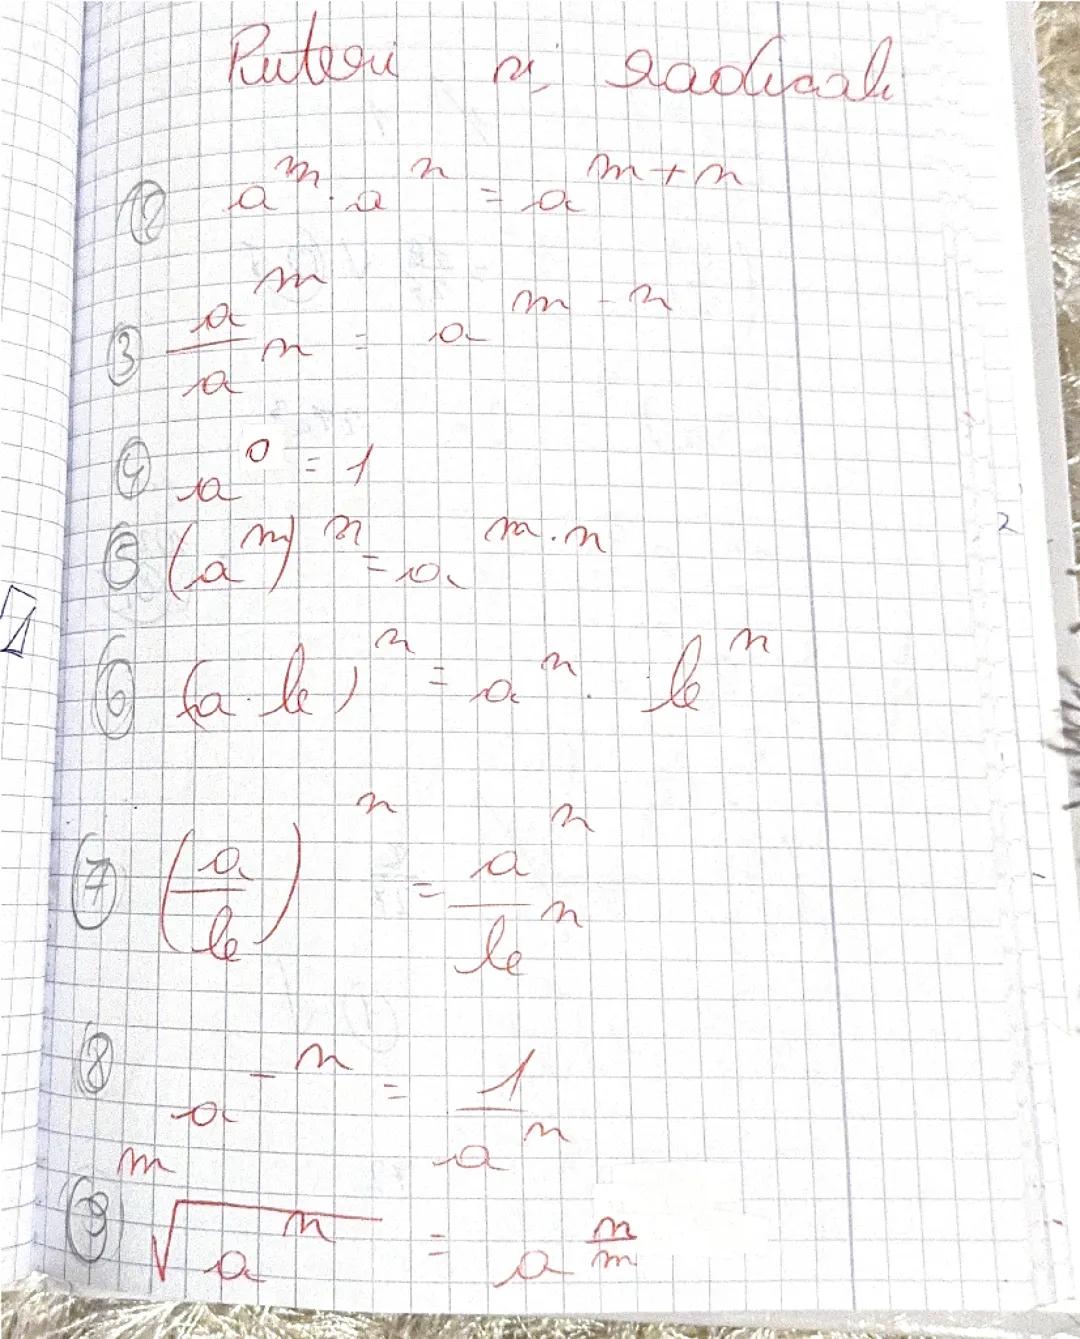 Puteri și radicali
② a^m · a^n = a^{m+n}
③ a^m / a^n = a^{m-n}
④ a^0 = 1
⑤ (a^m)^n = a^{m·n}
⑥ (a·b)^n = a^n · b^n
⑦ (a/b)^n = a^n / b^n
⑧ a^{-n} = 1 / a^n
⑨ \sqrt[m]{a^n} = a^{n/m}
2